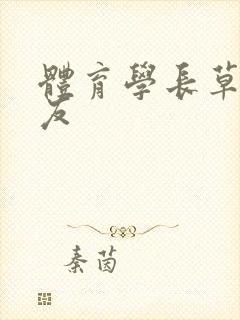 體育學長草
友
秦茵